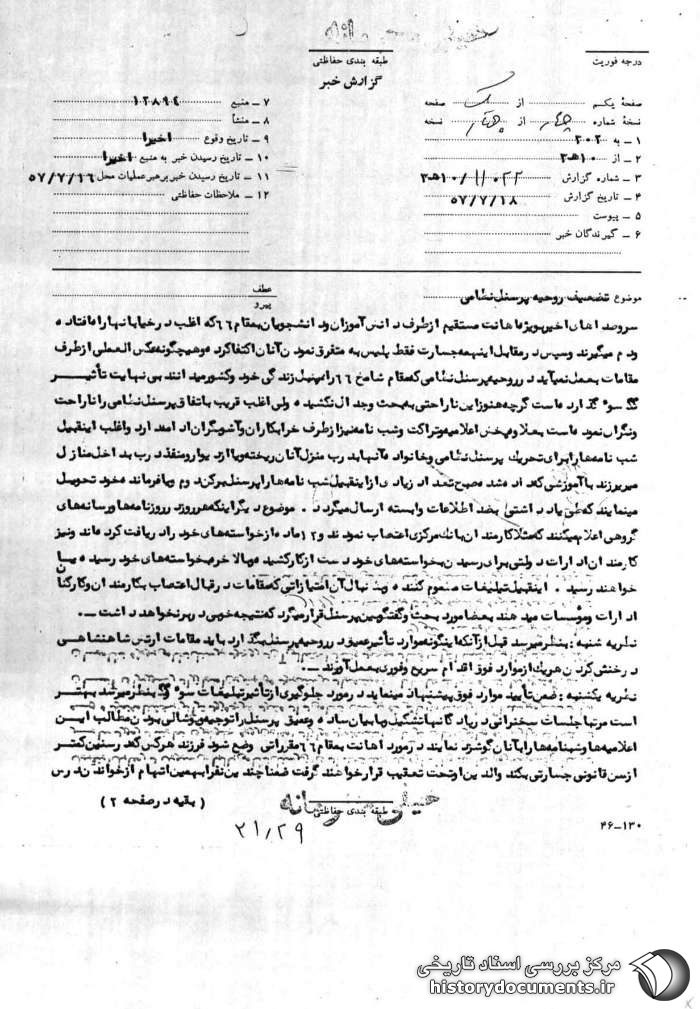 خیلی محرمانه
طبقه بندی حفاظتی
گزارش خبر
درجه فوریت
صفحهٔ یکم از یک صفحه
نسخهٔ شماره چهار از چهار نسخه
۱ ـ به ۳۰۲
۲ ـ از ۱۰ هـ ۳
۳ ـ شماره گزارش ۱۱۰۲۲ / ۱۰ هـ ۳
۴ ـ تاریخ گزارش ۵۷/۷/۱۸
۵ ـ پیوست
۶ ـ گیرندگان خبر
۷ ـ منبع ۱۲۸۹۴
۸ ـ منشأ
۹ ـ تاریخ وقوع اخیرا
۱۰ ـ تاریخ رسیدن خبر به منبع اخیرا
۱۱ ـ تاریخ رسیدن خبر برهبر عملیات محل ۵۷/۷/۱۶
۱۲ ـ ملاحظات حفاظتی
موضوع تضعیف روحیه پرسنل نظامی
عطف
پیرو
سروصداهای اخیر بویژه اهانت مستقیم از طرف دانش آموزان و دانشجویان بمقام ۶۶ که اغلب در خیابانها راه افتاده
و دم میگیرند و سپس در مقابل اینهمه جسارت فقط پلیس به متفرق نمودن آنان اکتفا کرده و هیچگونه عکس العملی از طرف
مقامات بعمل نمیآید در روحیه پرسنل نظامی که مقام شامخ ۶۶ را سمبل زندگی خود و کشور میدانند بی نهایت تأثیر
سوء گذارده است گرچه هنوز این ناراحتی به بحث و جدال نکشیده ولی اغلب قریب باتفاق پرسنل نظامی را ناراحت
و نگران نموده است بعلاوه پخش اعلامیه و تراکت و شب نامه نیز از طرف خرابکاران و آشوبگران ادامه دارد و اغلب اینقبیل
شب نامه ها را برای تحریک پرسنل نظامی و خانواده آنها بدرب منزل آنان ریخته و یا از دیوار و منفذ درب بداخل منازل
میریزند با آموزشی که داده شده صبح تعداد زیادی از اینقبیل شب نامه ها را پرسنل برکن دوم و یا فرمانده خود تحویل
مینمایند که طی یادداشتی بضد اطلاعات وابسته ارسال میگردد. موضوع دیگر اینکه هر روز روزنامه ها و رسانه های
گروهی اعلام میکنند که مثلا کارمندان بانک مرکزی اعتصاب نمودند و ۱۲ ماده از خواسته های خود را دریافت کرده اند و نیز
کارمندان ادارات دولتی برای رسیدن بخواسته های خود دست از کار کشیده و بالاخره بخواسته های خود رسیده یا
خواهند رسید. اینقبیل تبلیغات مسموم کننده و بدنبال آن امتیازاتی که مقامات در قبال اعتصاب بکارمندان و کارکنان
ادارات و مؤسسات میدهند بعضا مورد بحث و گفتگو بین پرسنل قرار میگرد که نتیجه خوبی در بر نخواهد داشت ـ.
نظریه شنبه: بنظر میرسد قبل از آنکه اینگونه موارد تأثیر عمیق در روحیه پرسنل بگذارد باید مقامات ارتش شاهنشاهی
در خنثی کردن هر یک از موارد فوق اقدام سریع و فوری بعمل آورند ـ.
نظریه یکشنبه: ضمن تأیید موارد فوق پیشنهاد مینماید در مورد جلوگیری از تأثیر تبلیغات سوء بنظر میرسد بهتر
است مرتبا جلسات سخنرانی در پادگانها تشکیل و با بیان ساده و عمیق پرسنل را توجیه و پوشالی بودن مطالب این
اعلامیه ها و شبنامه ها را بآنان گوشزد نمایند در مورد اهانت بمقام ۶۶ مقرراتی وضع شود فرزند هر کس که در سنین کمتر
از سن قانونی جسارتی بکند والدین او تحت تعقیب قرار خواهند گرفت ضمنا چندین نفر بهمین اتهام از خواندن درس
( بقیه در صفحه ۲ )
خیلی محرمانه
طبقه بندی حفاظتی
۲۱٫۲۹
۴۶-۱۳۰
مرکز بررسی اسناد تاریخی
historydocuments.ir